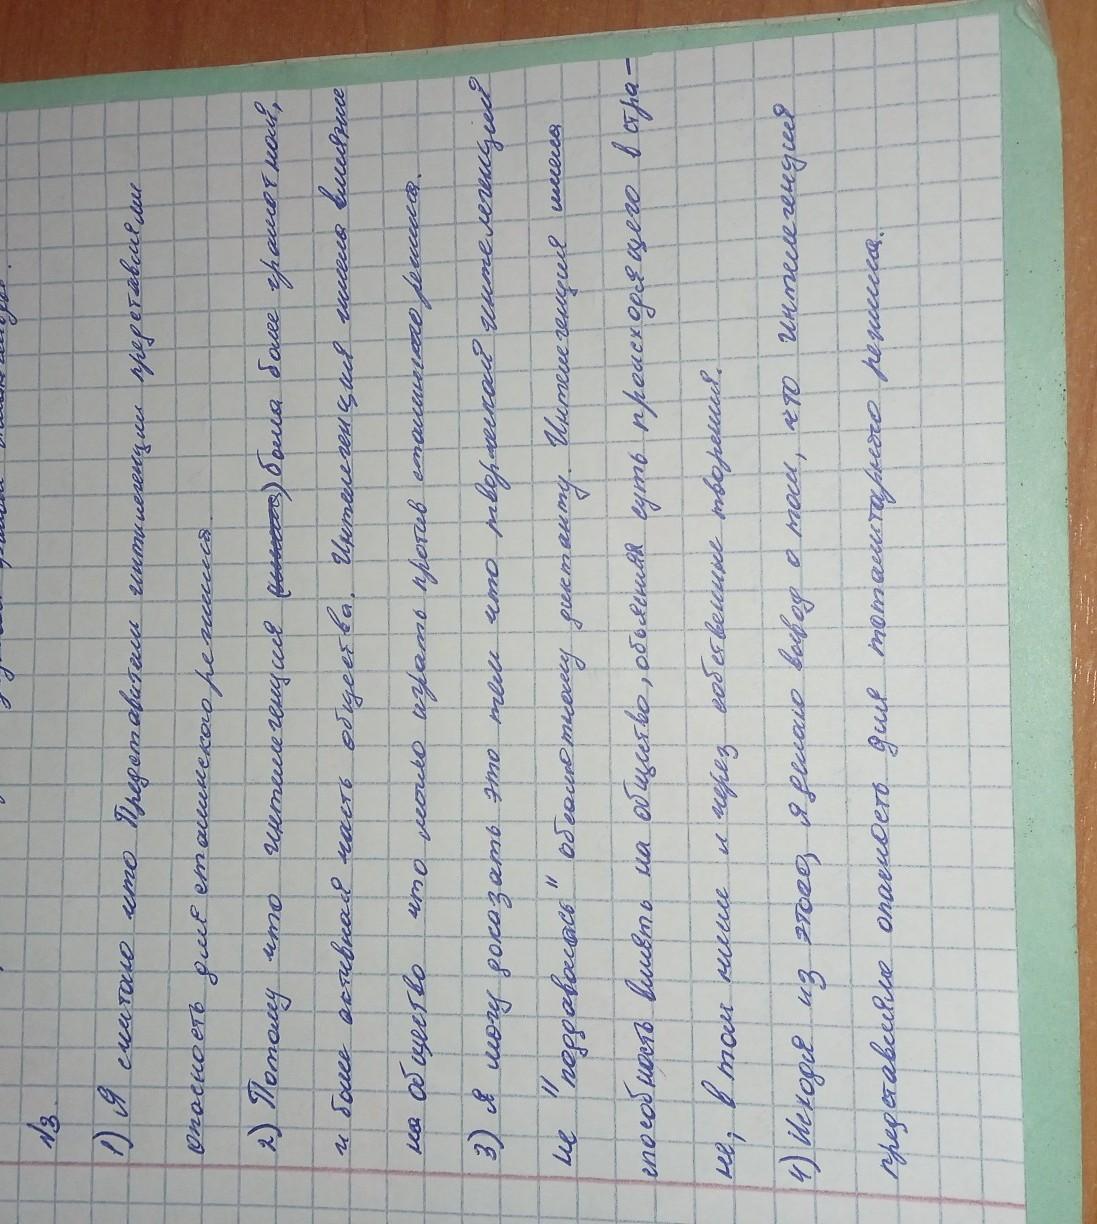 №3.
1) Я считаю что Представители интилегенции представляли
опасность для сталинского режима
2) Потому что интилегенция была более грамотной,
и более активная часть общества. Интилегенция имела влияние
на общество что могло играть против сталинского режима.
3) Я могу доказать это тем что творческой интелегенцией
не "поддавалась" абсолютному диктанту. Интилегенция имела
способность влиять на общество, обьясняя суть происходящего в стра-
не, в том числе и через собственные творения.
4) Исходя из этого, я делаю вывод о том, что интилегенция
представляла опасность для тоталитарного режима.